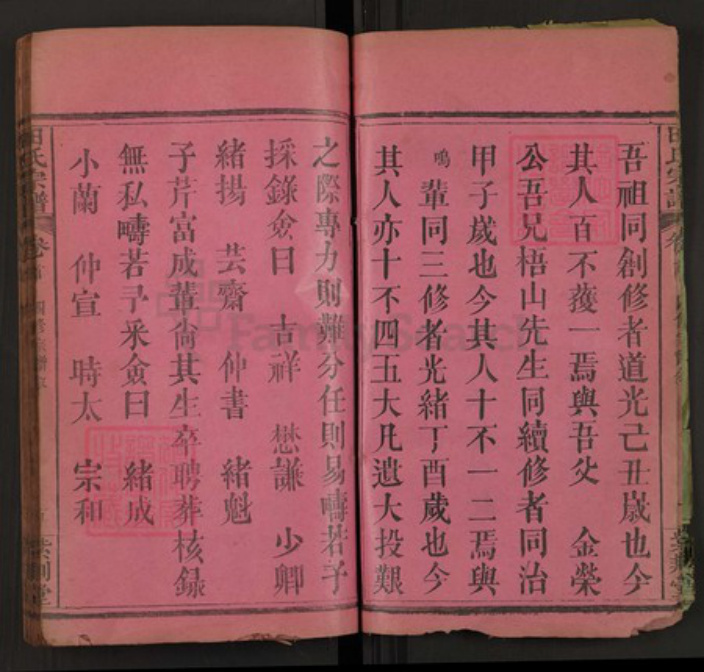 吾祖同創修者道光己丑歲也今
其人百不蓡一焉與吾父 金榮
公吾兄梧山先生同續修者同治
甲子歲也今其人十不一二焉與
鳴 輩同三修者光緒丁酉歲也今
其人亦十不四五大凡遺大投艱
之際專力則難分任則易疇若予
採錄僉曰 吉祥 懋謙 少卿
緒揚 芸齋 仲書 緒魁
子芹富成輩僉其生卒聘葬核錄
無私疇若予采僉曰 緒成
小蘭 仲宣 時太 宗和
田氏宗譜
卷首
紫荆堂
FamilySearch